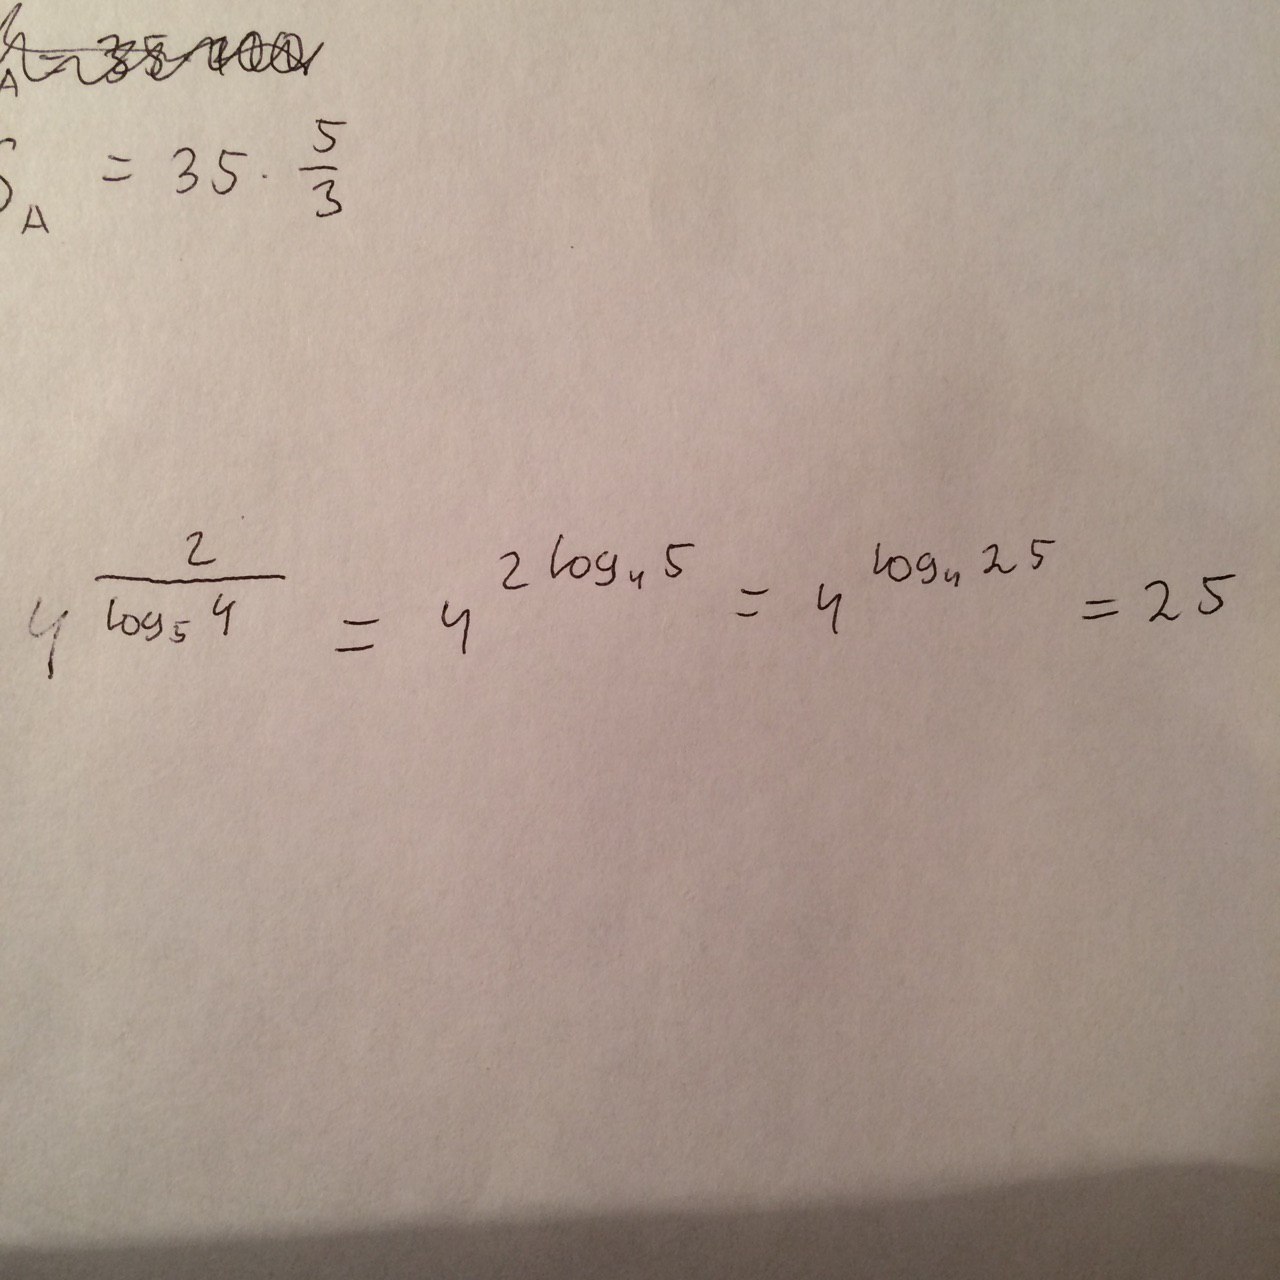 S_A = 35 · 5/3
4^(2/(log₅ 4)) = 4^(2 log₄ 5) = 4^(log₄ 25) = 25